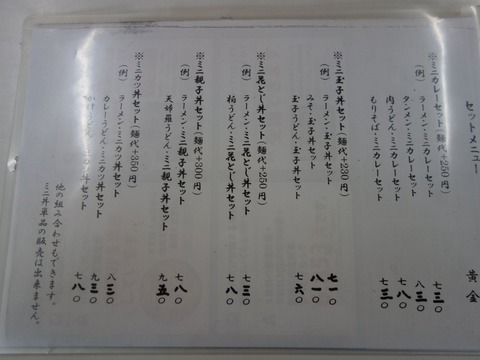 セットメニュー
黄金
※ミニカレーセット(麺代+250円)
(例)
ラーメン・ミニカレーセット
七三〇
タンメン・ミニカレーセット
八三〇
肉うどん・ミニカレーセット
七八〇
もりそば・ミニカレーセット
七三〇
※ミニ玉子丼セット(麺代+230円)
(例)
ラーメン・玉子丼セット
七一〇
みそ・玉子丼セット
八一〇
玉子うどん・玉子丼セット
七六〇
※ミニ花とじ丼セット(麺代+250円)
(例)
ラーメン・ミニ花とじ丼セット
七三〇
柏うどん・ミニ花とじ丼セット
七八〇
※ミニ親子丼セット(麺代+300円)
(例)
ラーメン・ミニ親子丼セット
七八〇
天婦羅うどん・ミニ親子丼セット
九五〇
※ミニカツ丼セット(麺代+350円)
(例)
ラーメン・ミニカツ丼セット
八三〇
カレーうどん・ミニカツ丼セット
九三〇
かけうどん・ミニカツ丼セット
七八〇
他の組み合わせもできます。
ミニ丼単品の販売は出来ません。